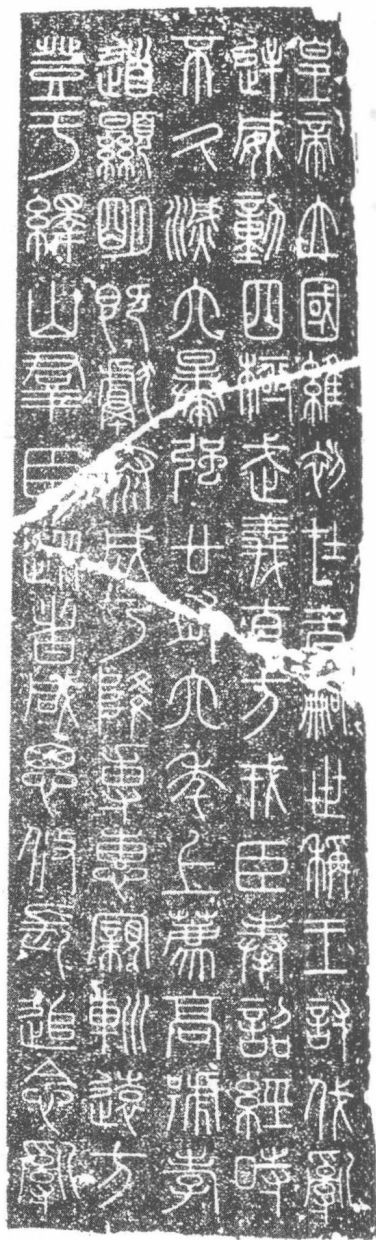 皇帝立國維初在昔嗣世稱王討伐亂
逆威動四極武義直方戎臣奉詔經時
不久滅六暴強廿有六年上薦高號孝
道顯明既獻泰成乃降專惠寴輈遠方
登于繹山羣臣從者咸思攸長追念亂